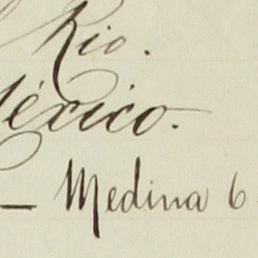 Rio.
México.
— Medina 6